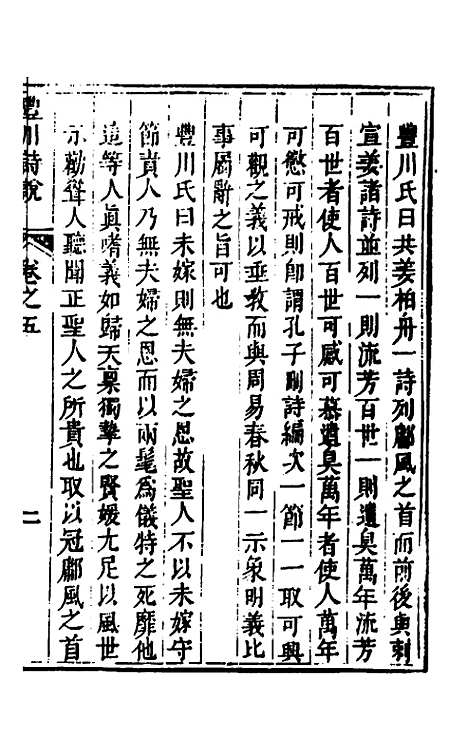 豐川氏曰共姜柏舟一詩列鄘風之首而前後與刺
宣姜諸詩並列一則流芳百世一則遺臭萬年流芳
百世者使人百世可感可慕遺臭萬年者使人萬年
可慾可戒則卽謂孔子刪詩編次一節一一取可興
可觀之義以垂敎而與周易春秋同一示象明義比
事屬辭之旨可也
豐川氏曰未嫁則無夫婦之恩故聖人不以未嫁守
節責人乃無夫婦之恩而以兩髦爲儀特之死靡他
這等人眞嗜義如歸天稟獨摯之賢媛尢足以風世
示勸聳人聽聞正聖人之所貴也取以冠鄘風之首
豐川詩說
卷之五
二